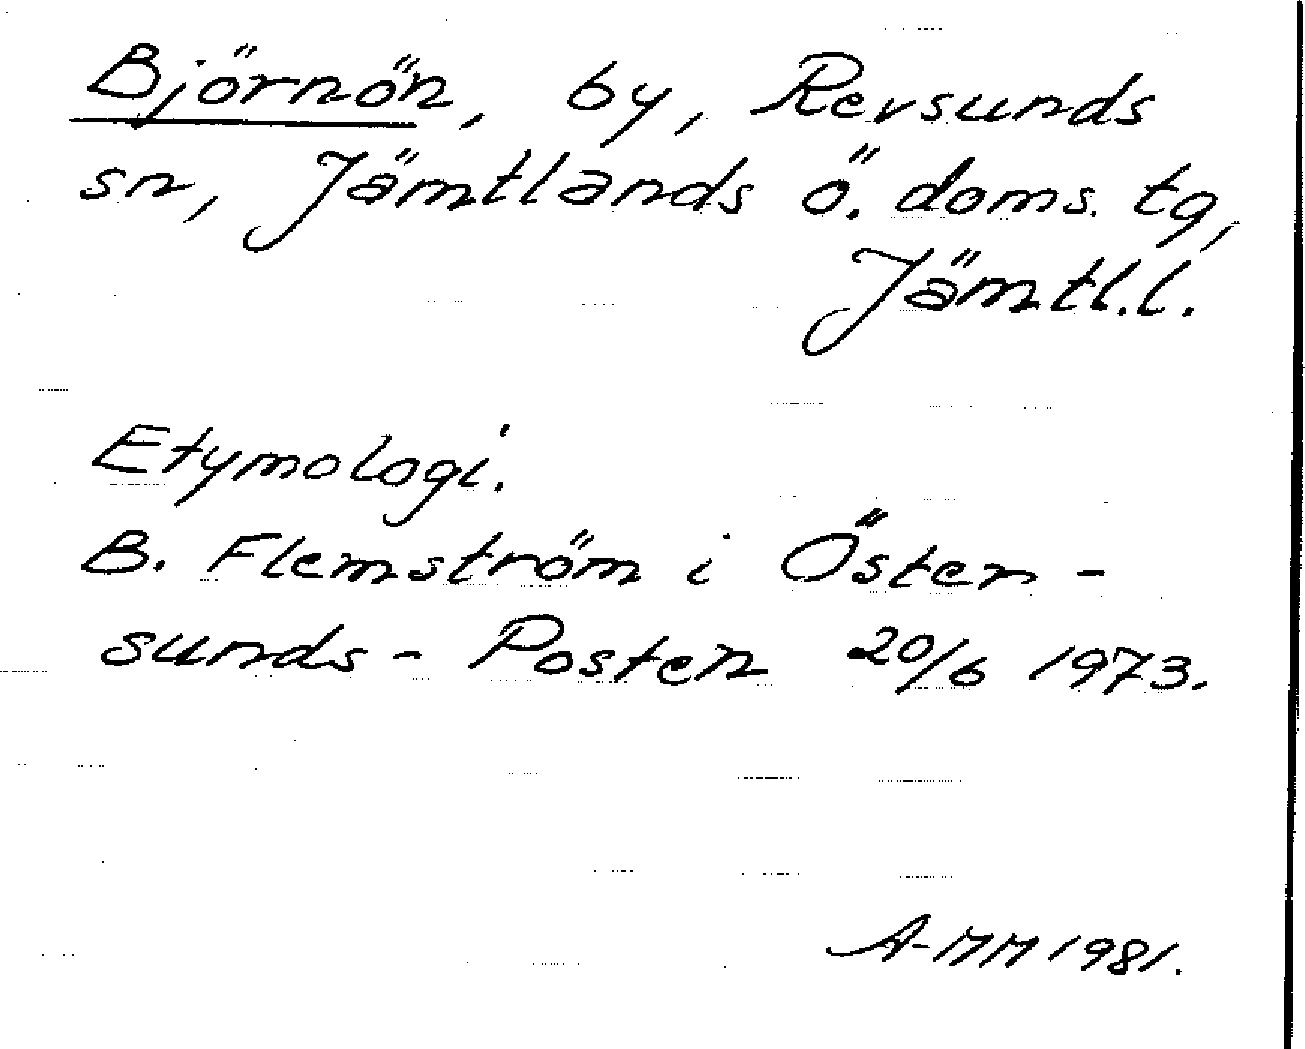 Björnön, by, Revsunds
sn, Jämtlands ö. doms. tg,
Jämtl.l.
Etymologi.
B. Flemström i Öster-
sunds-Posten 20/6 1973.
A-MM 1981.